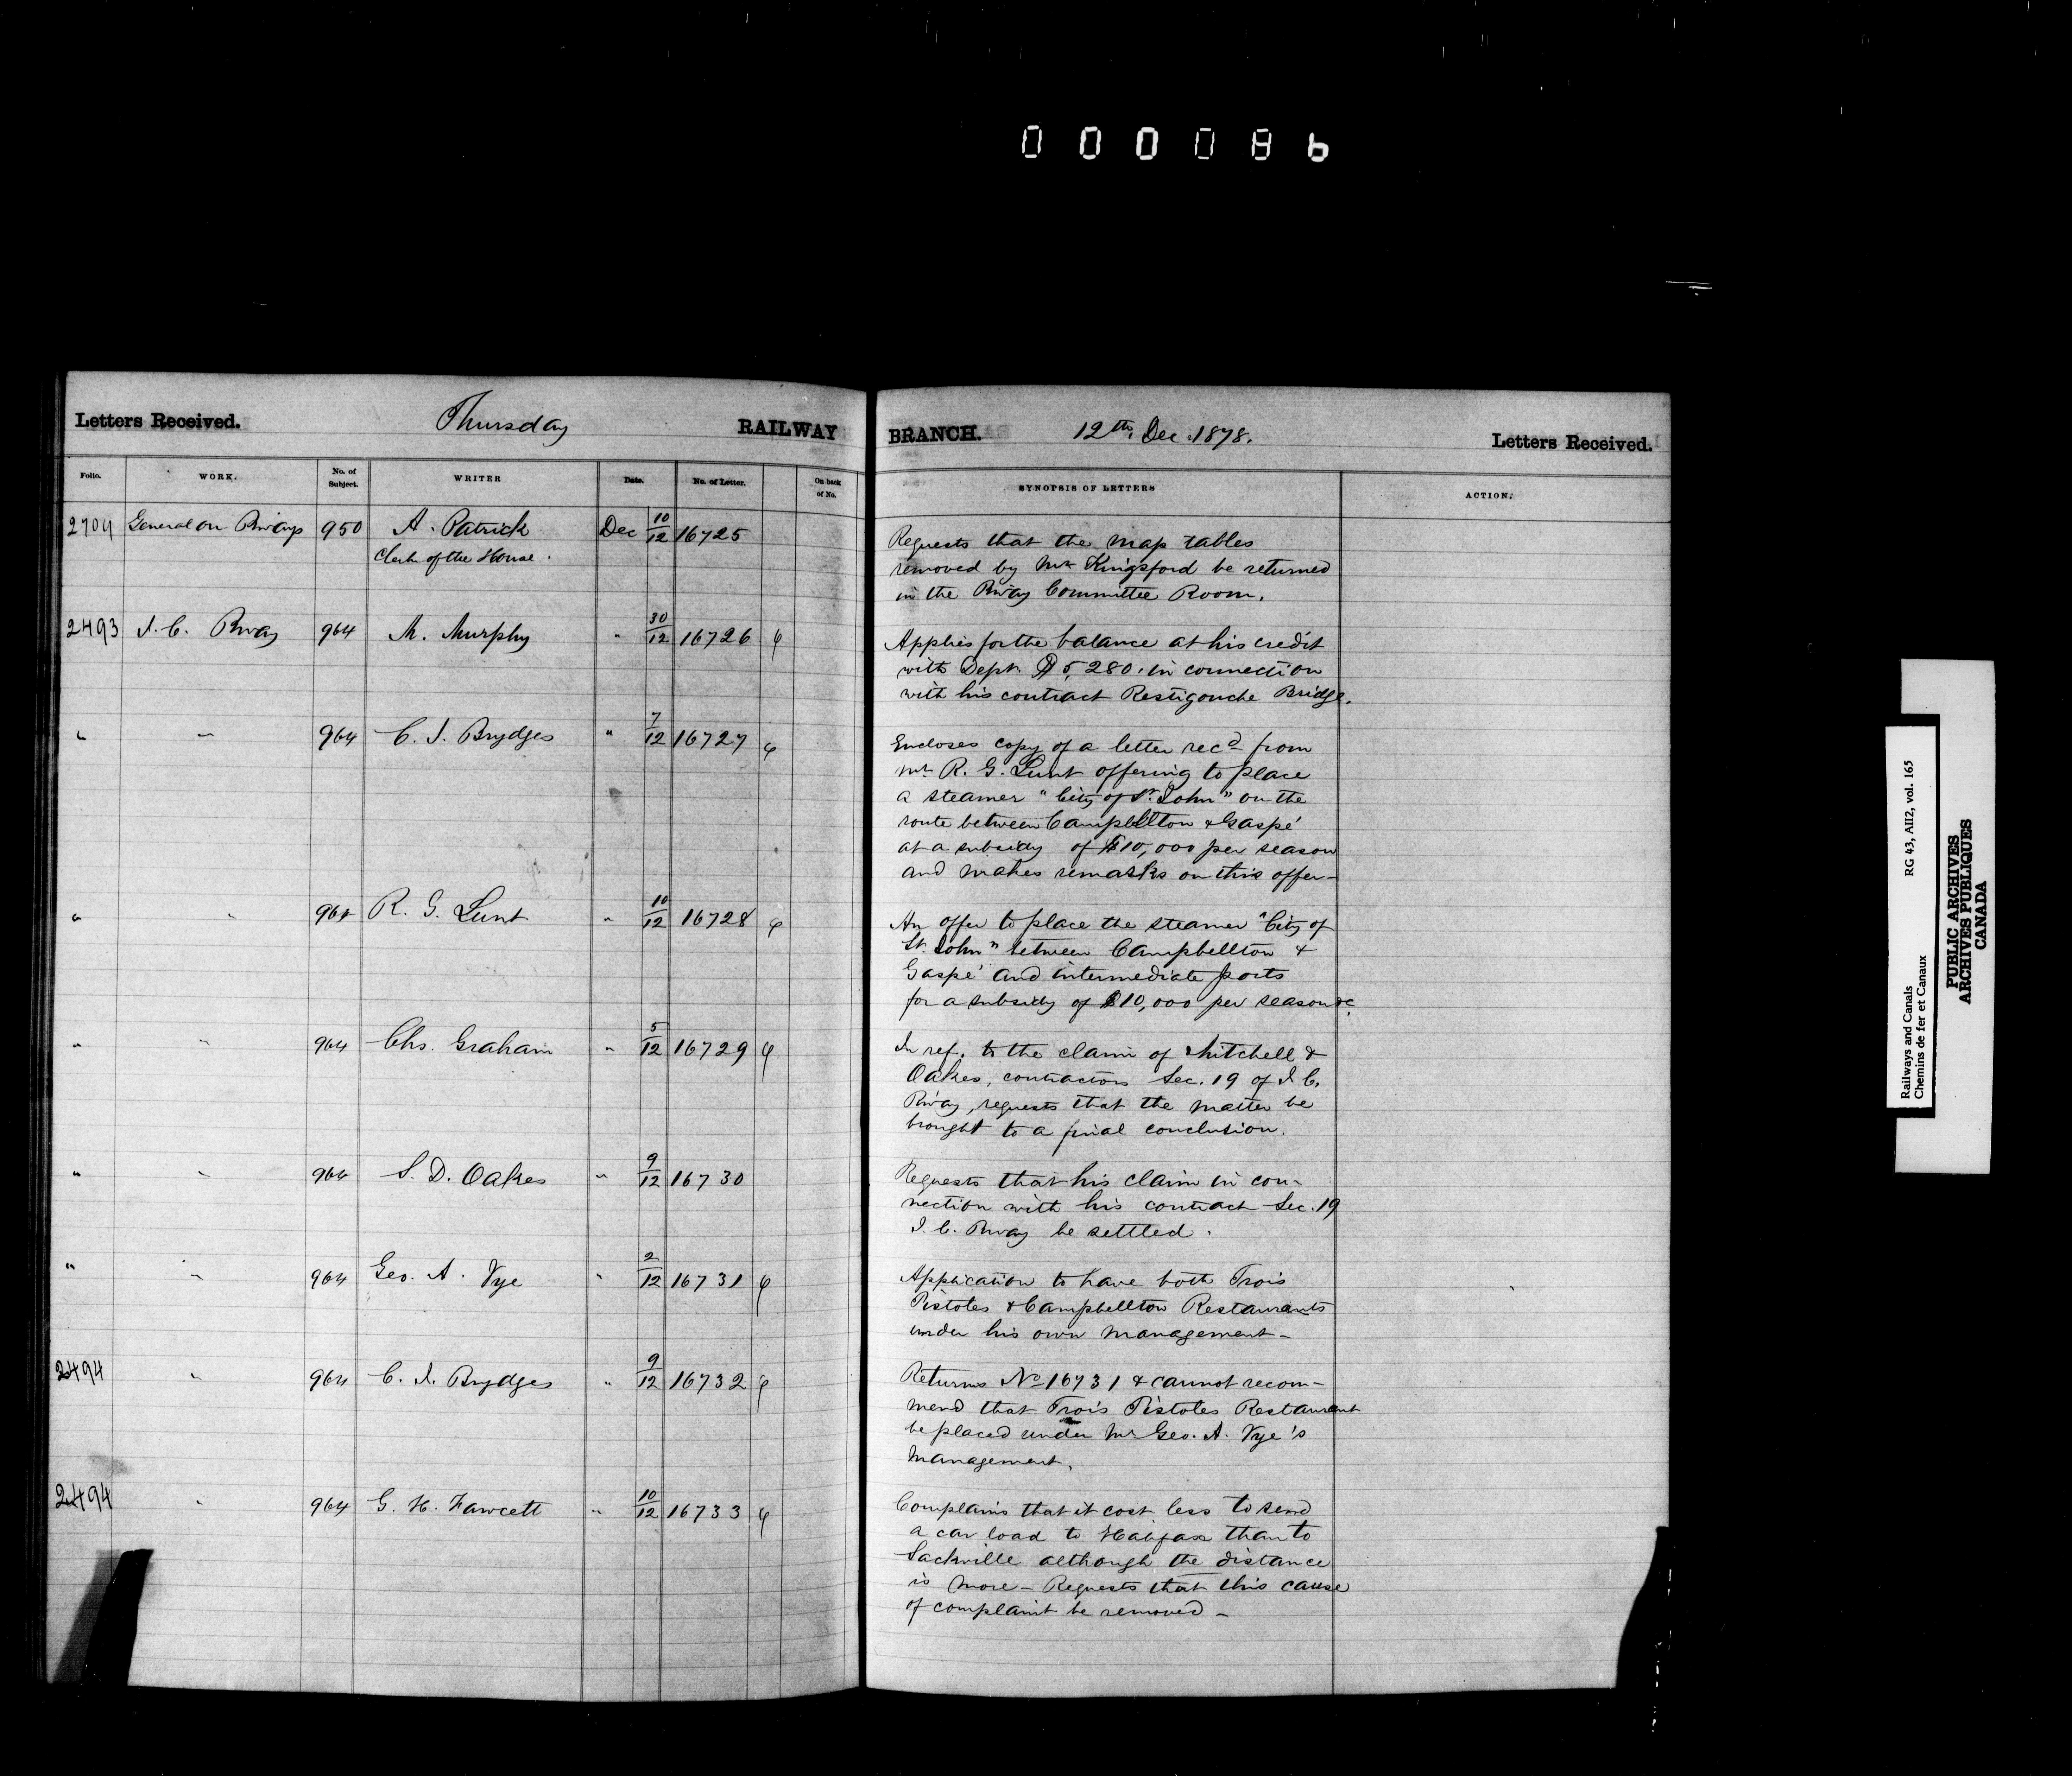 000086
Letters Received. Thursday RAILWAY
Folio. WORK. No. of Subject. WRITER Date. No. of Letter. On back of No.
2704 General on Rways 950 A. Patrick Dec 10/12 16725
Clerk of the House.
2493 I. C. Rway 964 M. Murphy " 30/12 16726 φ
" " 964 C. J. Brydges " 7/12 16727 φ
" " 964 R. G. Lunt " 10/12 16728 φ
" " 964 Chs. Graham " 5/12 16729 φ
" " 964 S. D. Oakes " 9/12 16730
" " 964 Geo. A. Vye " 2/12 16731 φ
2494 " 964 C. J. Brydges " 9/12 16732 φ
2494 " 964 G. H. Fawcett " 10/12 16733 φ
BRANCH. 12th. Dec. 1878. Letters Received.
SYNOPSIS OF LETTERS ACTION.
Requests that the map tables
removed by Mr Kingsford be returned
in the Rway Committee Room.
Applies for the balance at his credit
with Dept. $5,280. in connection
with his contract Restigouche Bridge.
Encloses copy of a letter recd from
Mr R. G. Lunt offering to place
a steamer "City of St. John" on the
route between Campbellton & Gaspé
at a subsidy of $10,000 per season
and makes remarks on this offer-
An offer to place the steamer "City of
St. John" between Campbellton &
Gaspé and intermediate ports
for a subsidy of $10,000 per season &c.
In ref. to the claim of Mitchell &
Oakes, contractors Sec. 19 of I C.
Rway, requests that the matter be
brought to a final conclusion.
Requests that his claim in con-
nection with his contract Sec. 19
I. C. Rway be settled.
Application to have both Trois
Pistoles & Campbellton Restaurants
under his own management-
Returns No 16731 & cannot recom-
mend that Trois Pistoles Restaurant
be placed under Mr Geo. A. Vye's
management.
Complains that it cost less to send
a car load to Halifax than to
Sackville although the distance
is more- Requests that this cause
of complaint be removed-
Railways and Canals RG 43, AII2, vol. 165
Chemins de fer et Canaux
PUBLIC ARCHIVES
ARCHIVES PUBLIQUES
CANADA